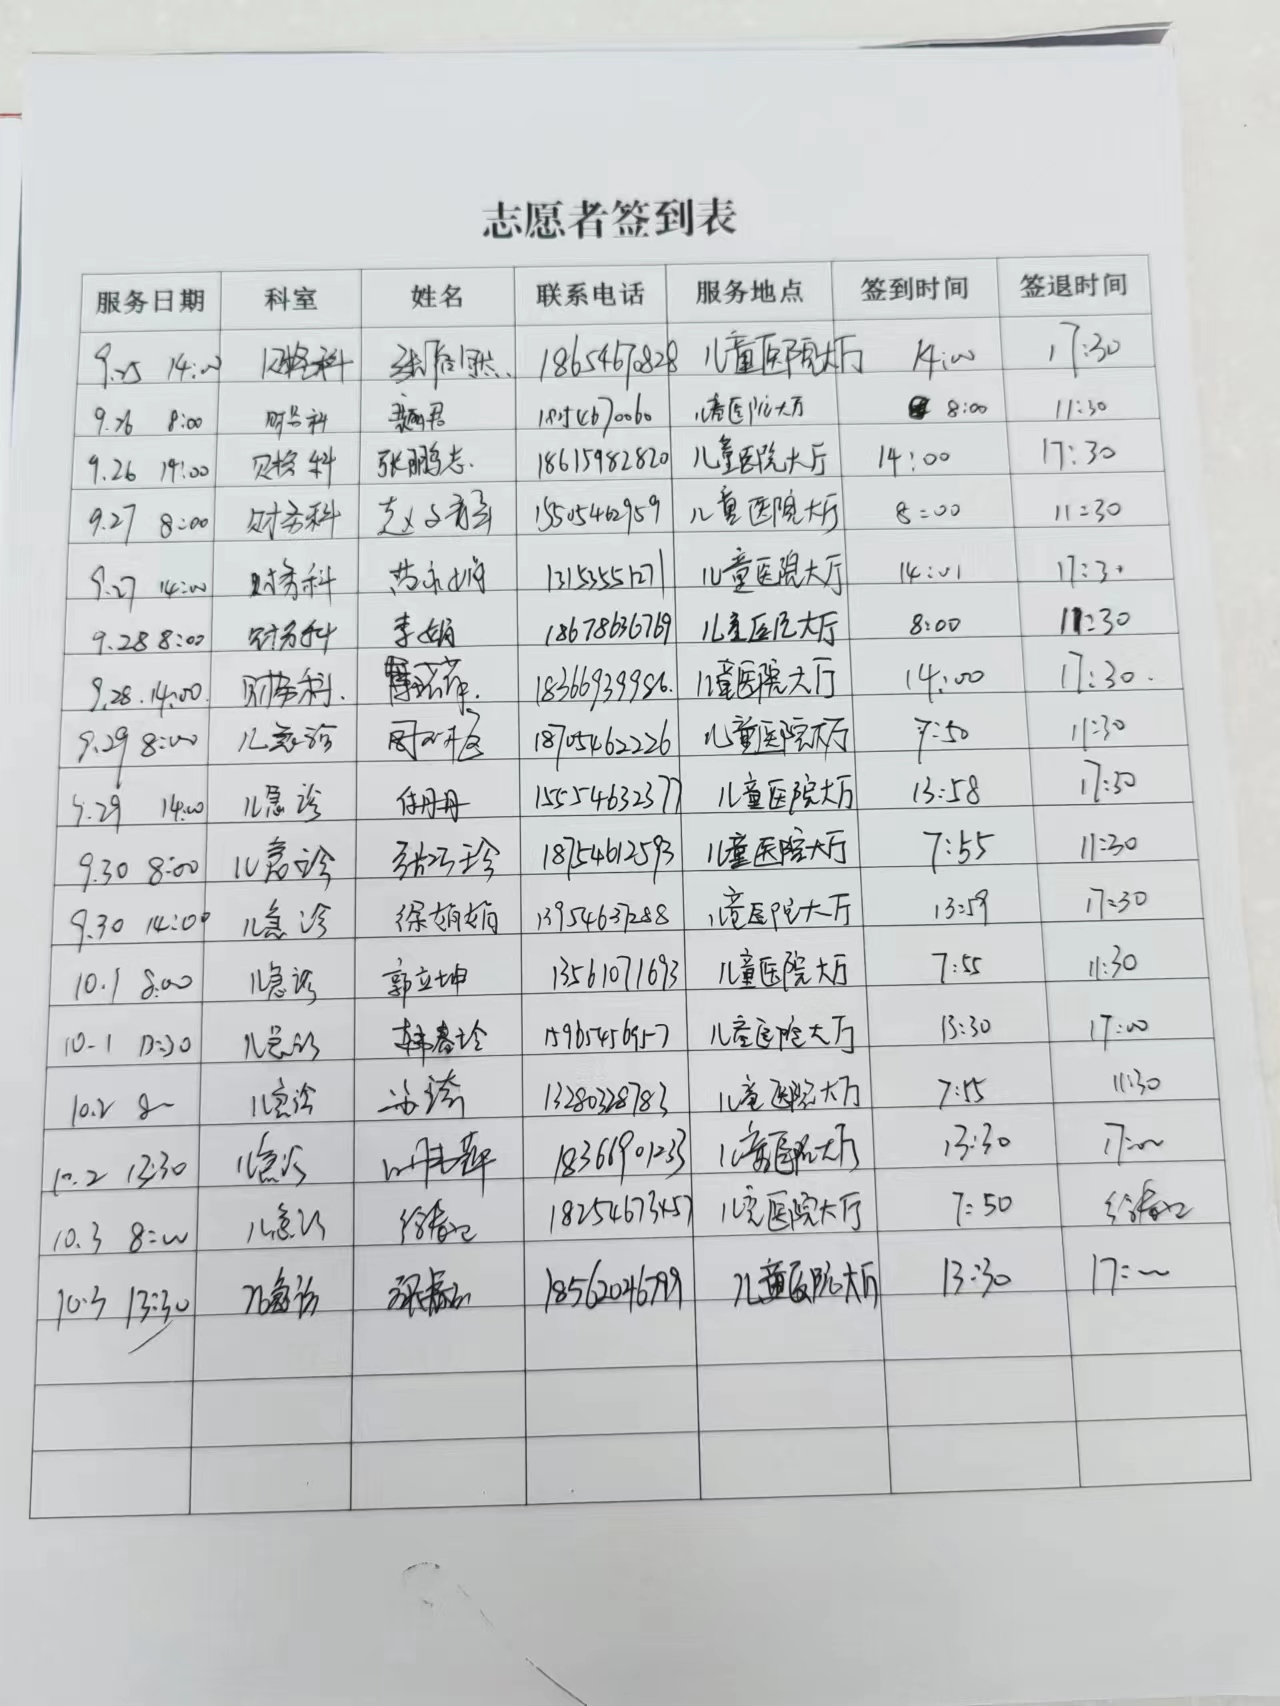 志愿者签到表
服务日期 科室 姓名 联系电话 服务地点 签到时间 签退时间
9.25 14:00 财务科 18654670828 儿童医院大厅 14:00 17:30
9.26 8:00 财务科 18054670060 儿童医院大厅 8:00 11:30
9.26 14:00 财务科 张鹏志. 18615982820 儿童医院大厅 14:00 17:30
9.27 8:00 财务科 15505462959 儿童医院大厅 8:00 11:30
9.27 14:00 财务科 13153551271 儿童医院大厅 14:01 17:30
9.28 8:00 财务科 李娟 18678636769 儿童医院大厅 8:00 11:30
9.28. 14:00. 财务科. 18366939986. 儿童医院大厅 14:00 17:30.
9.29 8:00 儿急诊 18705462226 儿童医院大厅 7:50 11:30
9.29 14:00 儿急诊 任丹丹 15554632377 儿童医院大厅 13:58 17:30
9.30 8:00 儿急诊 张巧玲 18754612593 儿童医院大厅 7:55 11:30
9.30 14:00 儿急诊 徐娟娟 13954637288 儿童医院大厅 13:59 17:30
10.1 8:00 儿急诊 郭立坤 13561071693 儿童医院大厅 7:55 11:30
10.1 13:30 儿急诊 韩春玲 15965456957 儿童医院大厅 13:30 17:00
10.2 8 儿急诊 13280328783 儿童医院大厅 7:55 11:30
10.2 13:30 儿急诊 18366901233 儿童医院大厅 13:30 17:00
10.3 8:00 儿急诊 18254673457 儿童医院大厅 7:50
10.3 13:30 儿急诊 18562046799 儿童医院大厅 13:30 17:00